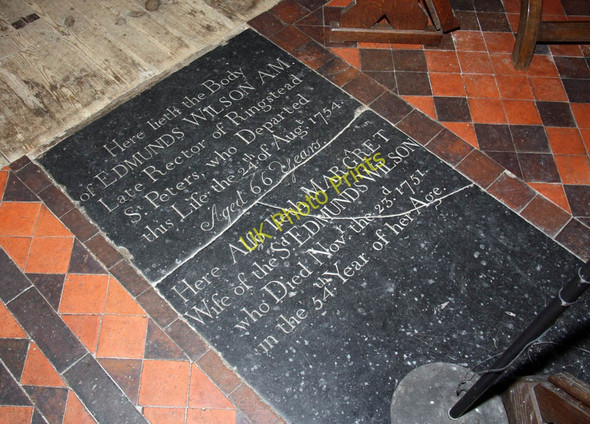 Here lieth the Body
of EDMUNDS WILSON A.M.
Late Rector of Ringstead
S.t Peters, who Departed
this Life the 24.th of Aug.st 1754.
Aged 66 Years
Here Also lies MARGRET
Wife of the S.d EDMUNDS WILSON
who Died Nov.r the 23.d 1751
in the 54.th Year of her Age.
UK Photo Prints